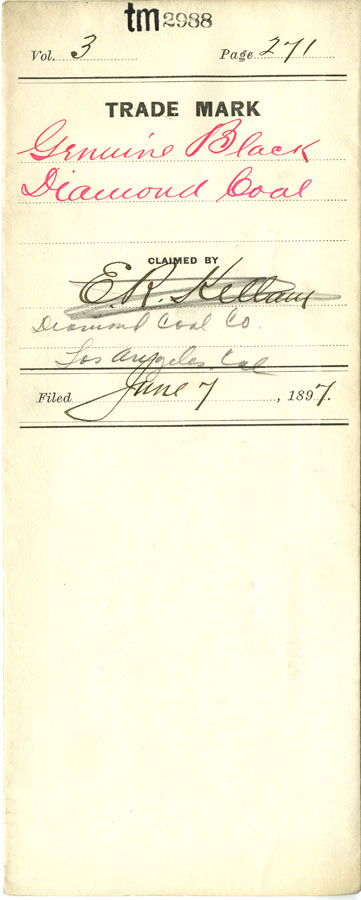 tm2988
Vol. 3 Page 271
TRADE MARK
Genuine Black
Diamond Coal
CLAIMED BY
E. R. Kellam
Diamond Coal Co.
Los Angeles. Cal
Filed June 7, 1897.